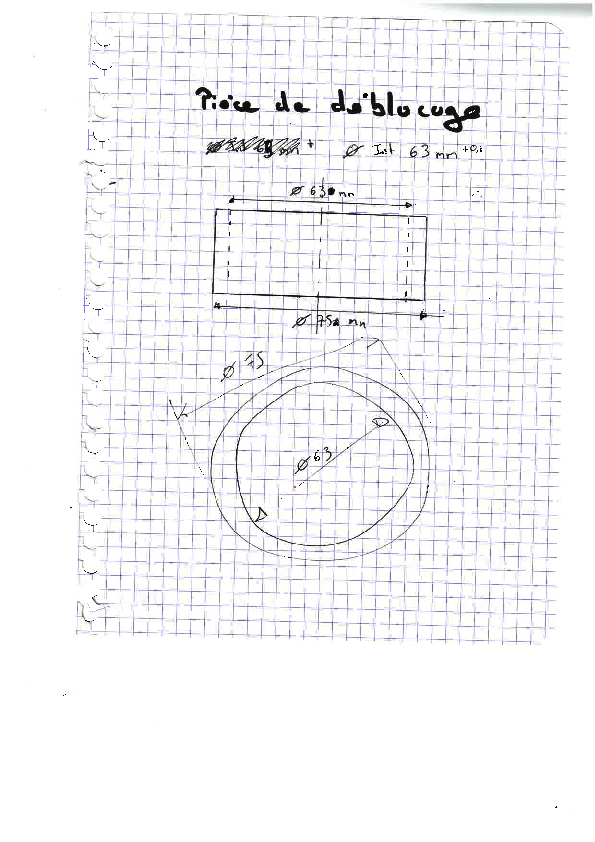 Pièce de déblocage
Ø Int 63 mm +0,1
Ø 63 mm
Ø 75 mm
Ø 75
Ø 63